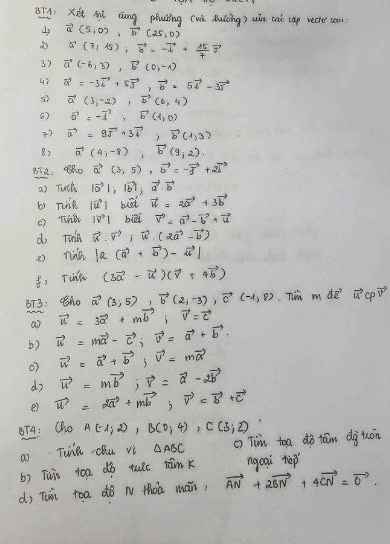 BT1: Xét sự cùng phương (và hướng) của các cặp vectơ sau:
1) a⃗ (5,0), b⃗ (25,0)
2) a⃗ (7,15), b⃗ = -i⃗ + 15/7 j⃗
3) a⃗ (-6,3), b⃗ (0,-1)
4) a⃗ = -3i⃗ + 5j⃗, b⃗ = 5i⃗ - 3j⃗
5) a⃗ (3,-2), b⃗ (6,4)
6) a⃗ = -i⃗, b⃗ (1,0)
7) a⃗ = 9j⃗ + 3i⃗, b⃗ (1,3)
8) a⃗ (4,-8), b⃗ (9,2).
BT2. Cho a⃗ (3,5), b⃗ = -j⃗ + 2i⃗
a) Tính |a⃗|, |b⃗|, a⃗.b⃗
b) Tính |u⃗| biết u⃗ = 2a⃗ + 3b⃗
c) Tính |v⃗| biết v⃗ = a⃗ - b⃗ + u⃗
d) Tính u⃗.v⃗, u⃗.(2a⃗ - b⃗)
e) Tính |2(a⃗ + b⃗) - u⃗|
f) Tính (3a⃗ - u⃗)(v⃗ + 4b⃗)
BT3: Cho a⃗ (3,5), b⃗ (2,-3), c⃗ (-1,8). Tìm m để u⃗ cp v⃗
a) u⃗ = 3a⃗ + mb⃗, v⃗ = c⃗
b) u⃗ = ma⃗ - c⃗; v⃗ = a⃗ + b⃗.
c) u⃗ = a⃗ + b⃗; v⃗ = ma⃗
d) u⃗ = mb⃗; v⃗ = a⃗ - 2b⃗
e) u⃗ = 2a⃗ + mb⃗; v⃗ = b⃗ + c⃗
BT4: Cho A(-1;2), B(0;4), C(3;2)
a) Tính chu vi ΔABC
b) Tìm toạ độ trực tâm K
c) Tìm toạ độ tâm đg tròn
ngoại tiếp
d) Tìm toạ độ N thỏa mãn: AN⃗ + 2BN⃗ + 4CN⃗ = 0⃗.